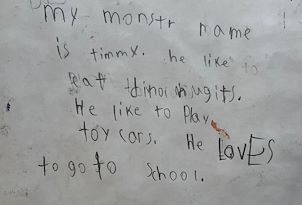 my monstr name
is timmy. he like to
eat dinonugits.
He like to Play
toy cars. He LOVES
to go to School.